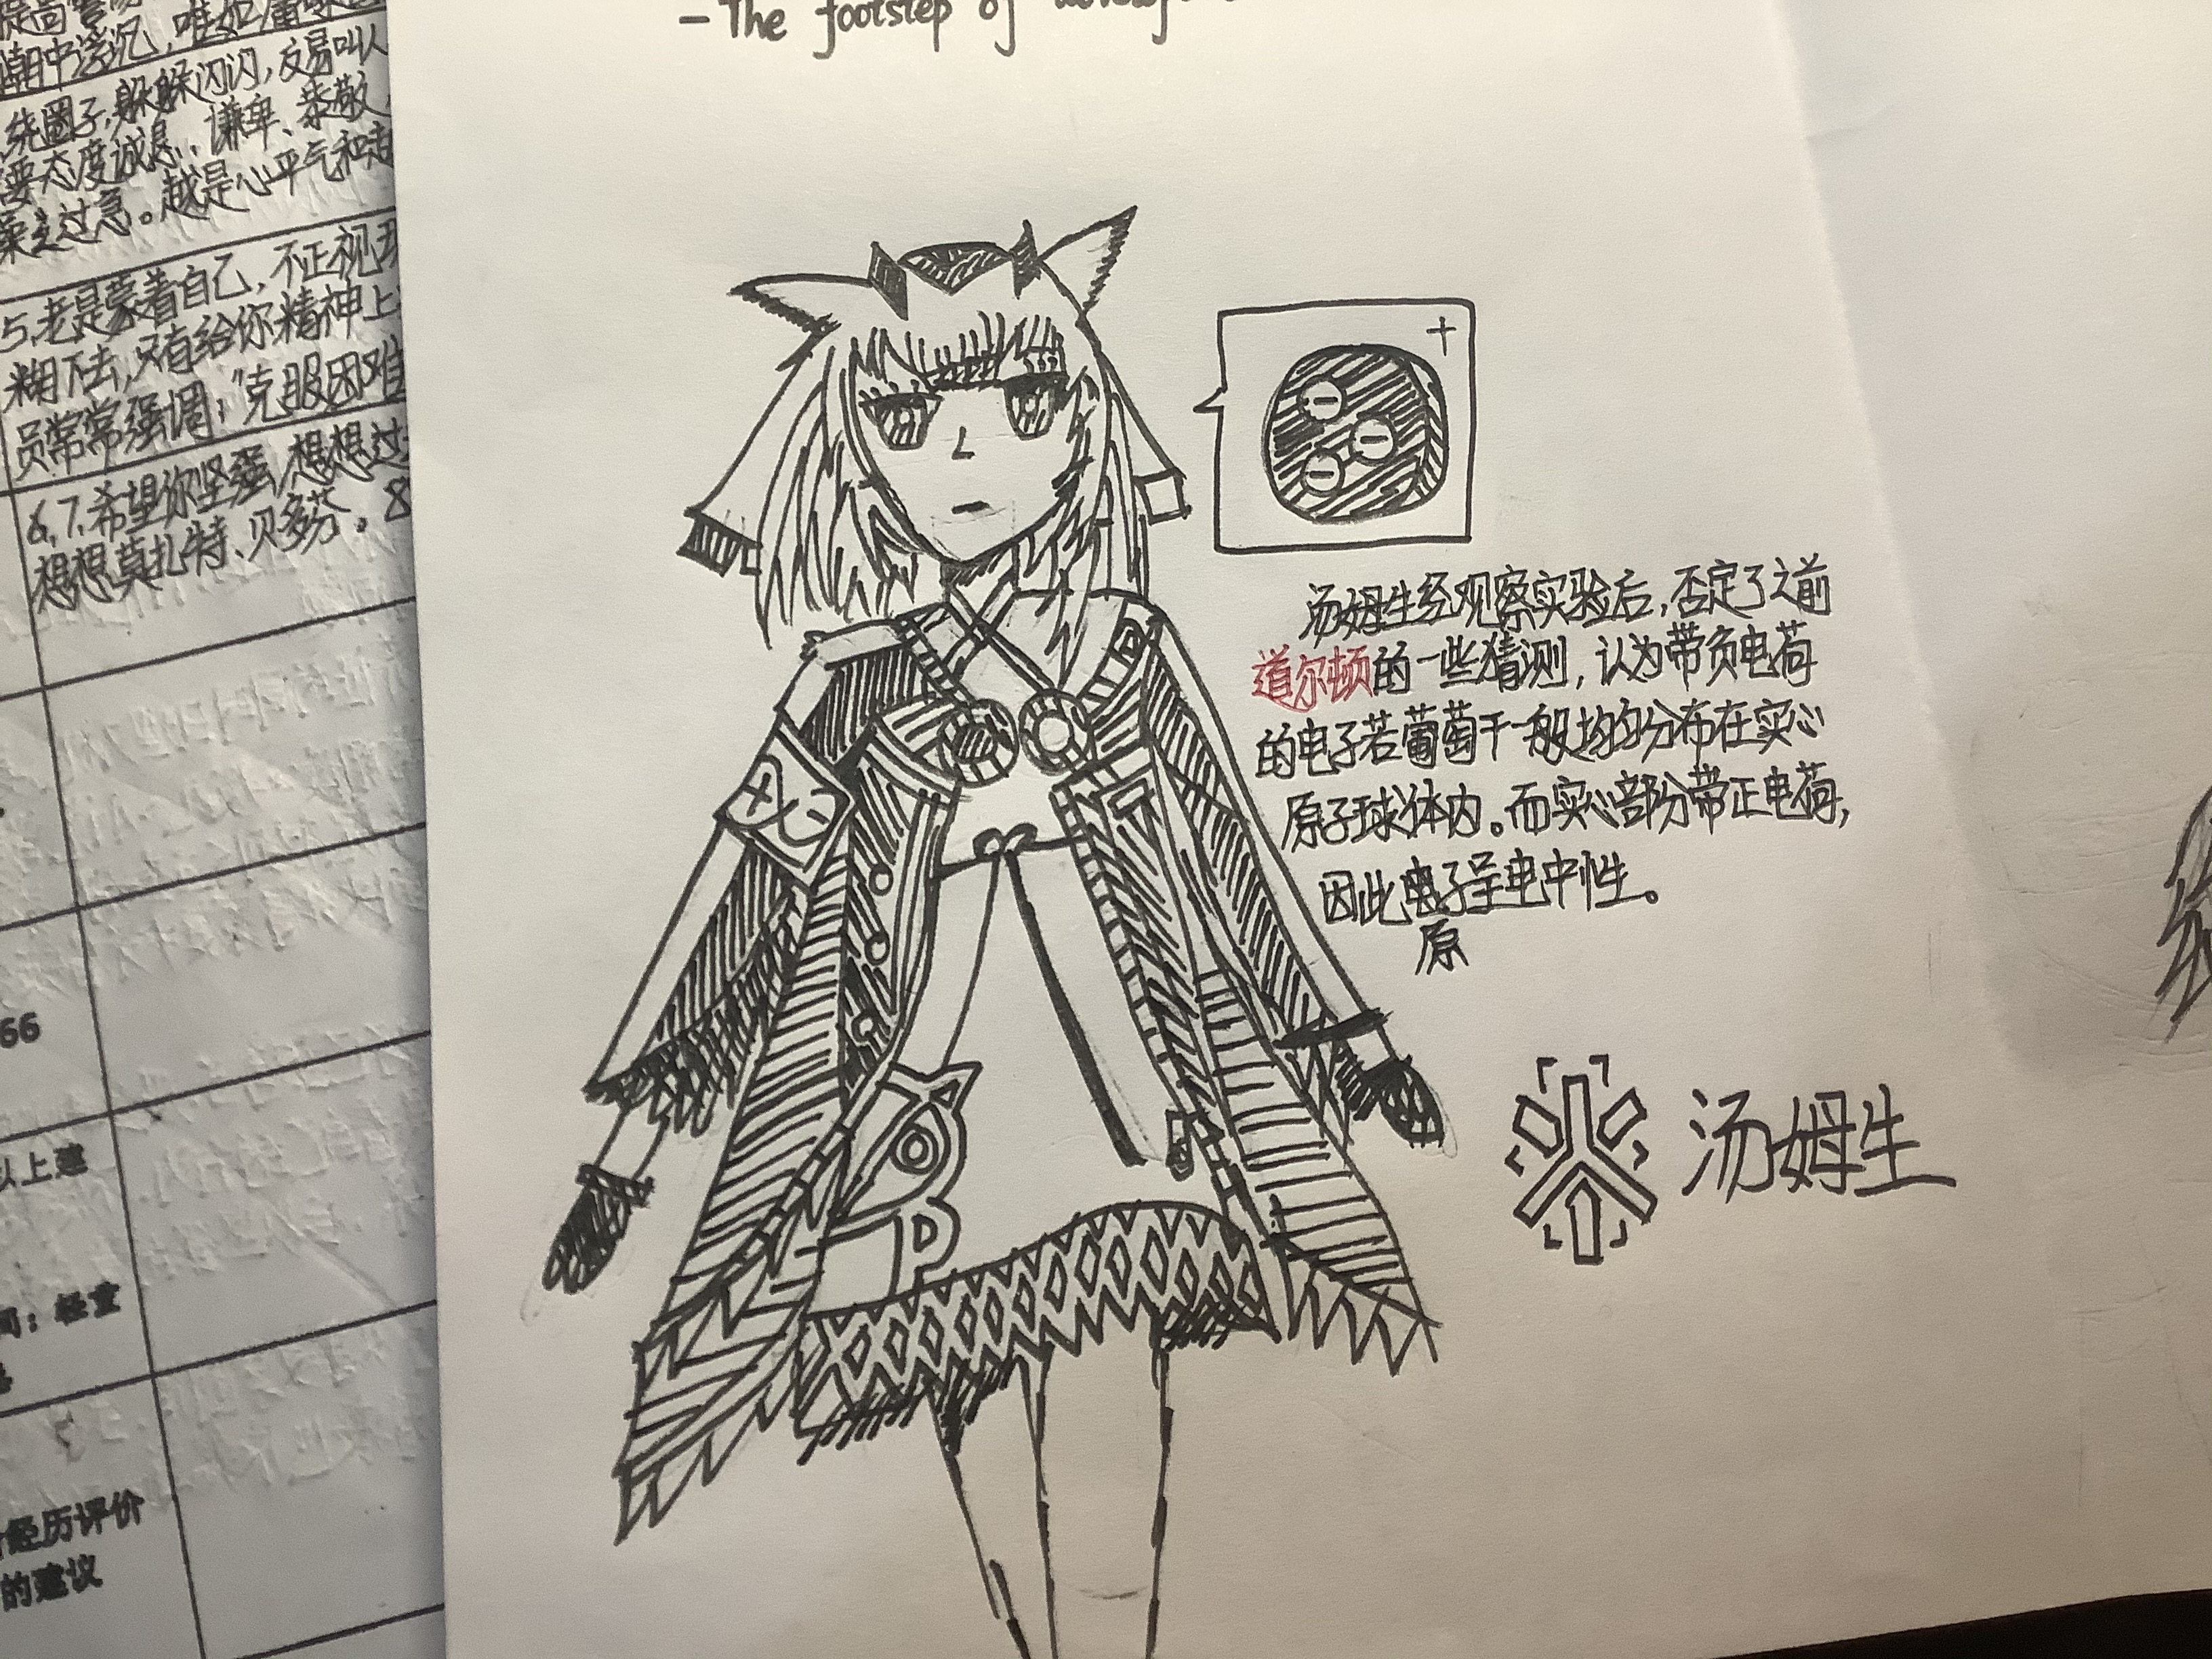 - The footstep of
潮中浮沉,唯如雷
绕圈子,躲躲闪闪,反易叫人
要态度诚恳、谦卑、恭敬,
躁过急。越是心平气和
5.老是蒙着自己,不正视现
糊下去,只有给你精神上
员常常强调:"克服困难
6、7.希望你坚强,想想过
想想莫扎特、贝多芬。8
66
以上建
间:轻重
经历评价
的建议
+
−
−
−
汤姆生经观察实验后,否定了之前
道尔顿的一些猜测,认为带负电荷
的电子若葡萄干一般均匀分布在实心
原子球体内。而实心部分带正电荷,
因此电子呈电中性。
原
汤姆生